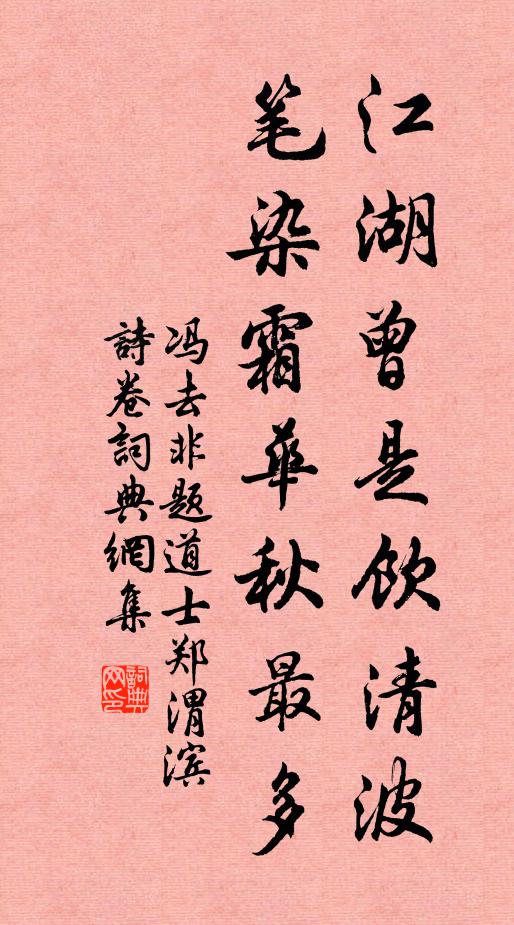 江湖曾是饮清波
笔染霜华秋最多
冯去非题道士郑渭滨
詩卷詞典網集
詞典
网印